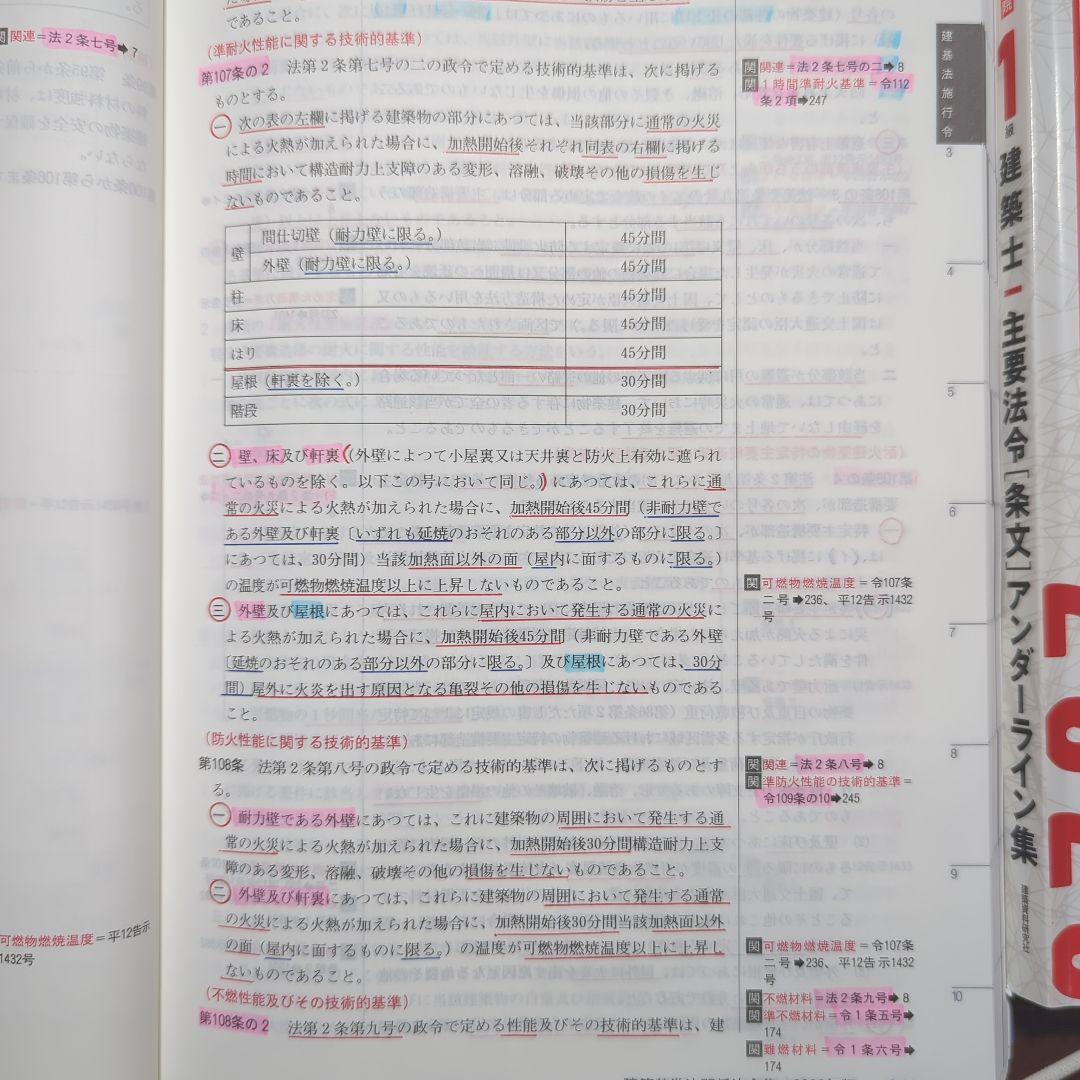 関連＝法２条七号➡7
であること。
（準耐火性能に関する技術的基準）
第107条の２　法第２条第七号の二の政令で定める技術的基準は、次に掲げる
ものとする。
一　次の表の左欄に掲げる建築物の部分にあつては、当該部分に通常の火災
による火熱が加えられた場合に、加熱開始後それぞれ同表の右欄に掲げる
時間において構造耐力上支障のある変形、溶融、破壊その他の損傷を生じ
ないものであること。
壁　間仕切壁（耐力壁に限る。）　45分間
外壁（耐力壁に限る。）　45分間
柱　45分間
床　45分間
はり　45分間
屋根（軒裏を除く。）　30分間
階段　30分間
二　壁、床及び軒裏（外壁によつて小屋裏又は天井裏と防火上有効に遮られ
ているものを除く。以下この号において同じ。）にあつては、これらに通
常の火災による火熱が加えられた場合に、加熱開始後45分間（非耐力壁で
ある外壁及び軒裏〔いずれも延焼のおそれのある部分以外の部分に限る。〕
にあつては、30分間）当該加熱面以外の面（屋内に面するものに限る。）
の温度が可燃物燃焼温度以上に上昇しないものであること。
三　外壁及び屋根にあつては、これらに屋内において発生する通常の火災に
よる火熱が加えられた場合に、加熱開始後45分間（非耐力壁である外壁
〔延焼のおそれのある部分以外の部分に限る。〕及び屋根にあつては、30分
間）屋外に火炎を出す原因となる亀裂その他の損傷を生じないものである
こと。
（防火性能に関する技術的基準）
第108条　法第２条第八号の政令で定める技術的基準は、次に掲げるものとす
る。
一　耐力壁である外壁にあつては、これに建築物の周囲において発生する通
常の火災による火熱が加えられた場合に、加熱開始後30分間構造耐力上支
障のある変形、溶融、破壊その他の損傷を生じないものであること。
二　外壁及び軒裏にあつては、これらに建築物の周囲において発生する通常
の火災による火熱が加えられた場合に、加熱開始後30分間当該加熱面以外
の面（屋内に面するものに限る。）の温度が可燃物燃焼温度以上に上昇し
ないものであること。
（不燃性能及びその技術的基準）
第108条の２　法第２条第九号の政令で定める性能及びその技術的基準は、建
関 関連＝法２条七号の二➡8
関 １時間準耐火基準＝令112
条２項➡247
関 可燃物燃焼温度＝令107条
二号➡236、平12告示1432
号
関 関連＝法２条八号➡8
関 準防火性能の技術的基準＝
令109条の10➡245
関 可燃物燃焼温度＝令107条
二号➡236、平12告示1432
号
関 不燃材料＝法２条九号➡8
関 準不燃材料＝令１条五号➡
174
関 難燃材料＝令１条六号➡
174
可燃物燃焼温度＝平12告示
1432号
建基法施行令
3
4
5
6
7
8
9
10
1級建築士－主要法令［条文］アンダーライン集
建築資料研究社